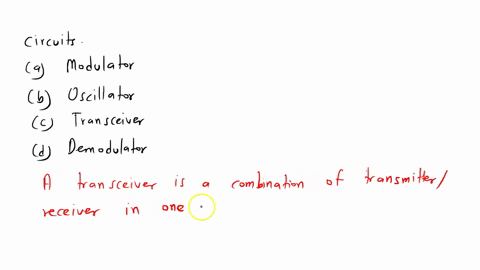 Circuits.
(a) Modulator
(b) Oscillator
(c) Transceiver
(d) Demodulator
A transceiver is a combination of transmitter/
receiver in one